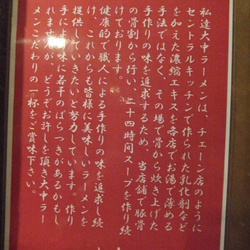 私達大中ラーメンは、チェーン店のように
セントラルキッチンで作られた乳化剤など
を加えた濃縮エキスを各店でお湯で薄める
手法ではなく、その場で骨から炊き上げた
手作りの味を追求するため、当店舗で豚骨
の骨割から行い、二十四時間スープを作り続
けております。
健康的で職人による手作りの味を追求し続
け、これからも皆様に美味しいラーメンを
提供していきたいと努力しています。作り
手により味に若干のばらつきがあるかもし
れませんが、どうぞお許しを頂き大中ラー
メンこだわりの一杯をご賞味下さい。